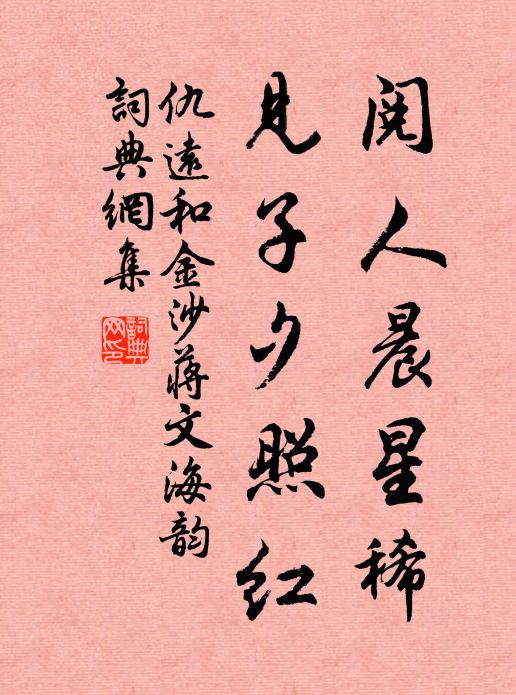 閱人晨星稀
見子夕照紅
仇遠和金沙蔣文海韵
詞典網集
詞典网印